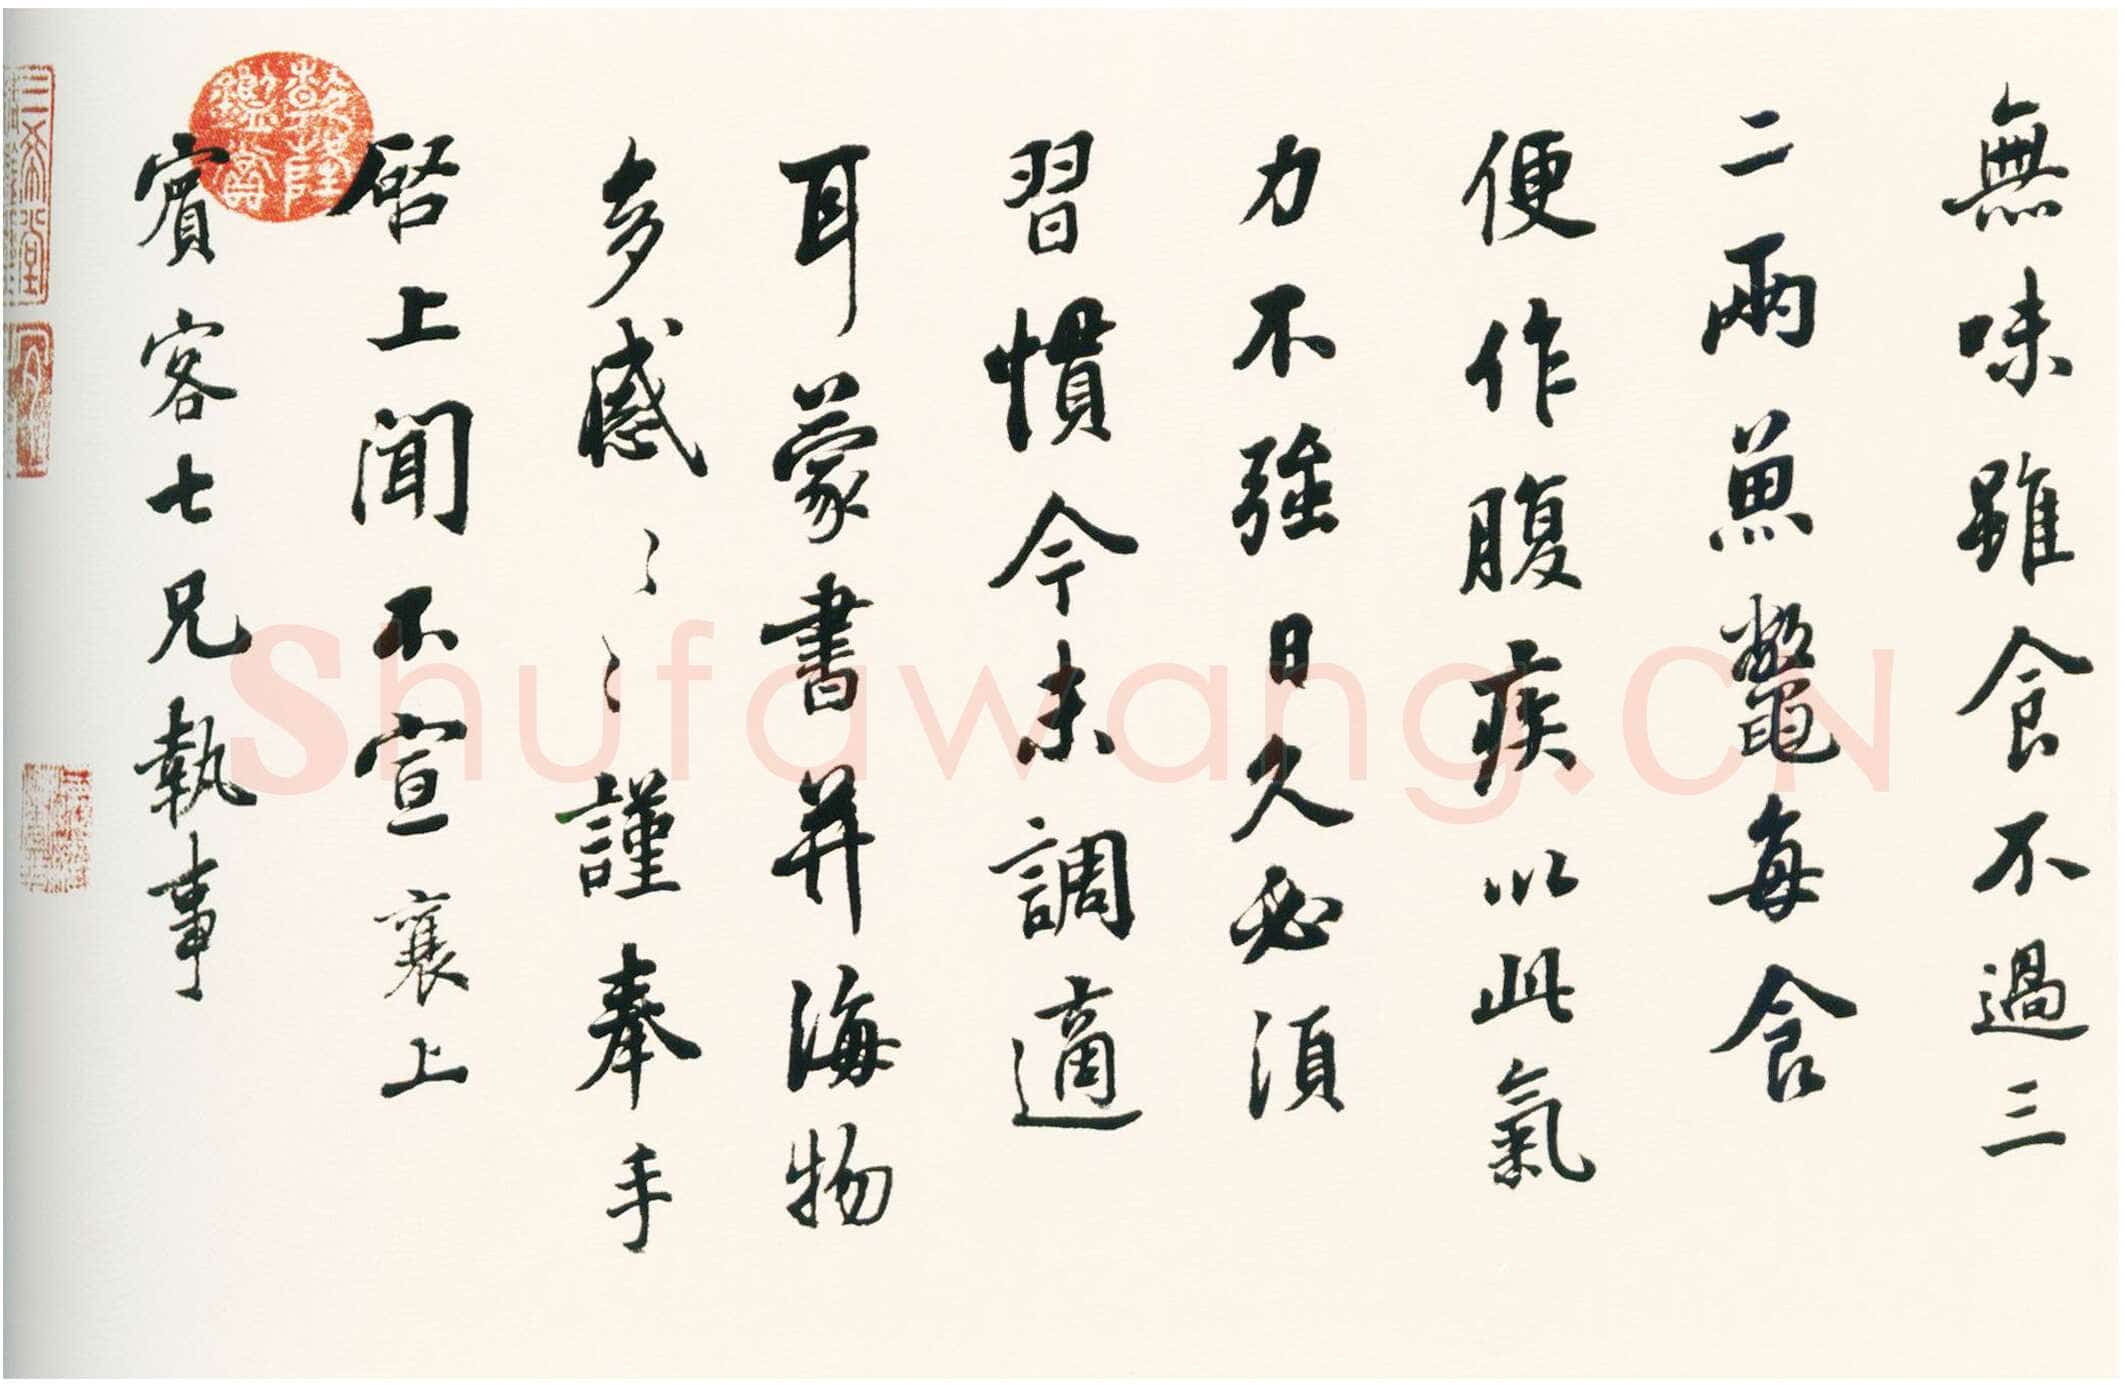 無味雖食不過三
二兩魚鼈每食
便作腹疾以此氣
力不強日久必須
習慣今未調適
耳蒙書并海物
多感〻〻謹奉手
啓上聞不宣襄上
賓客七兄執事
乾隆鑑賞
三希堂
Shufawang.CN